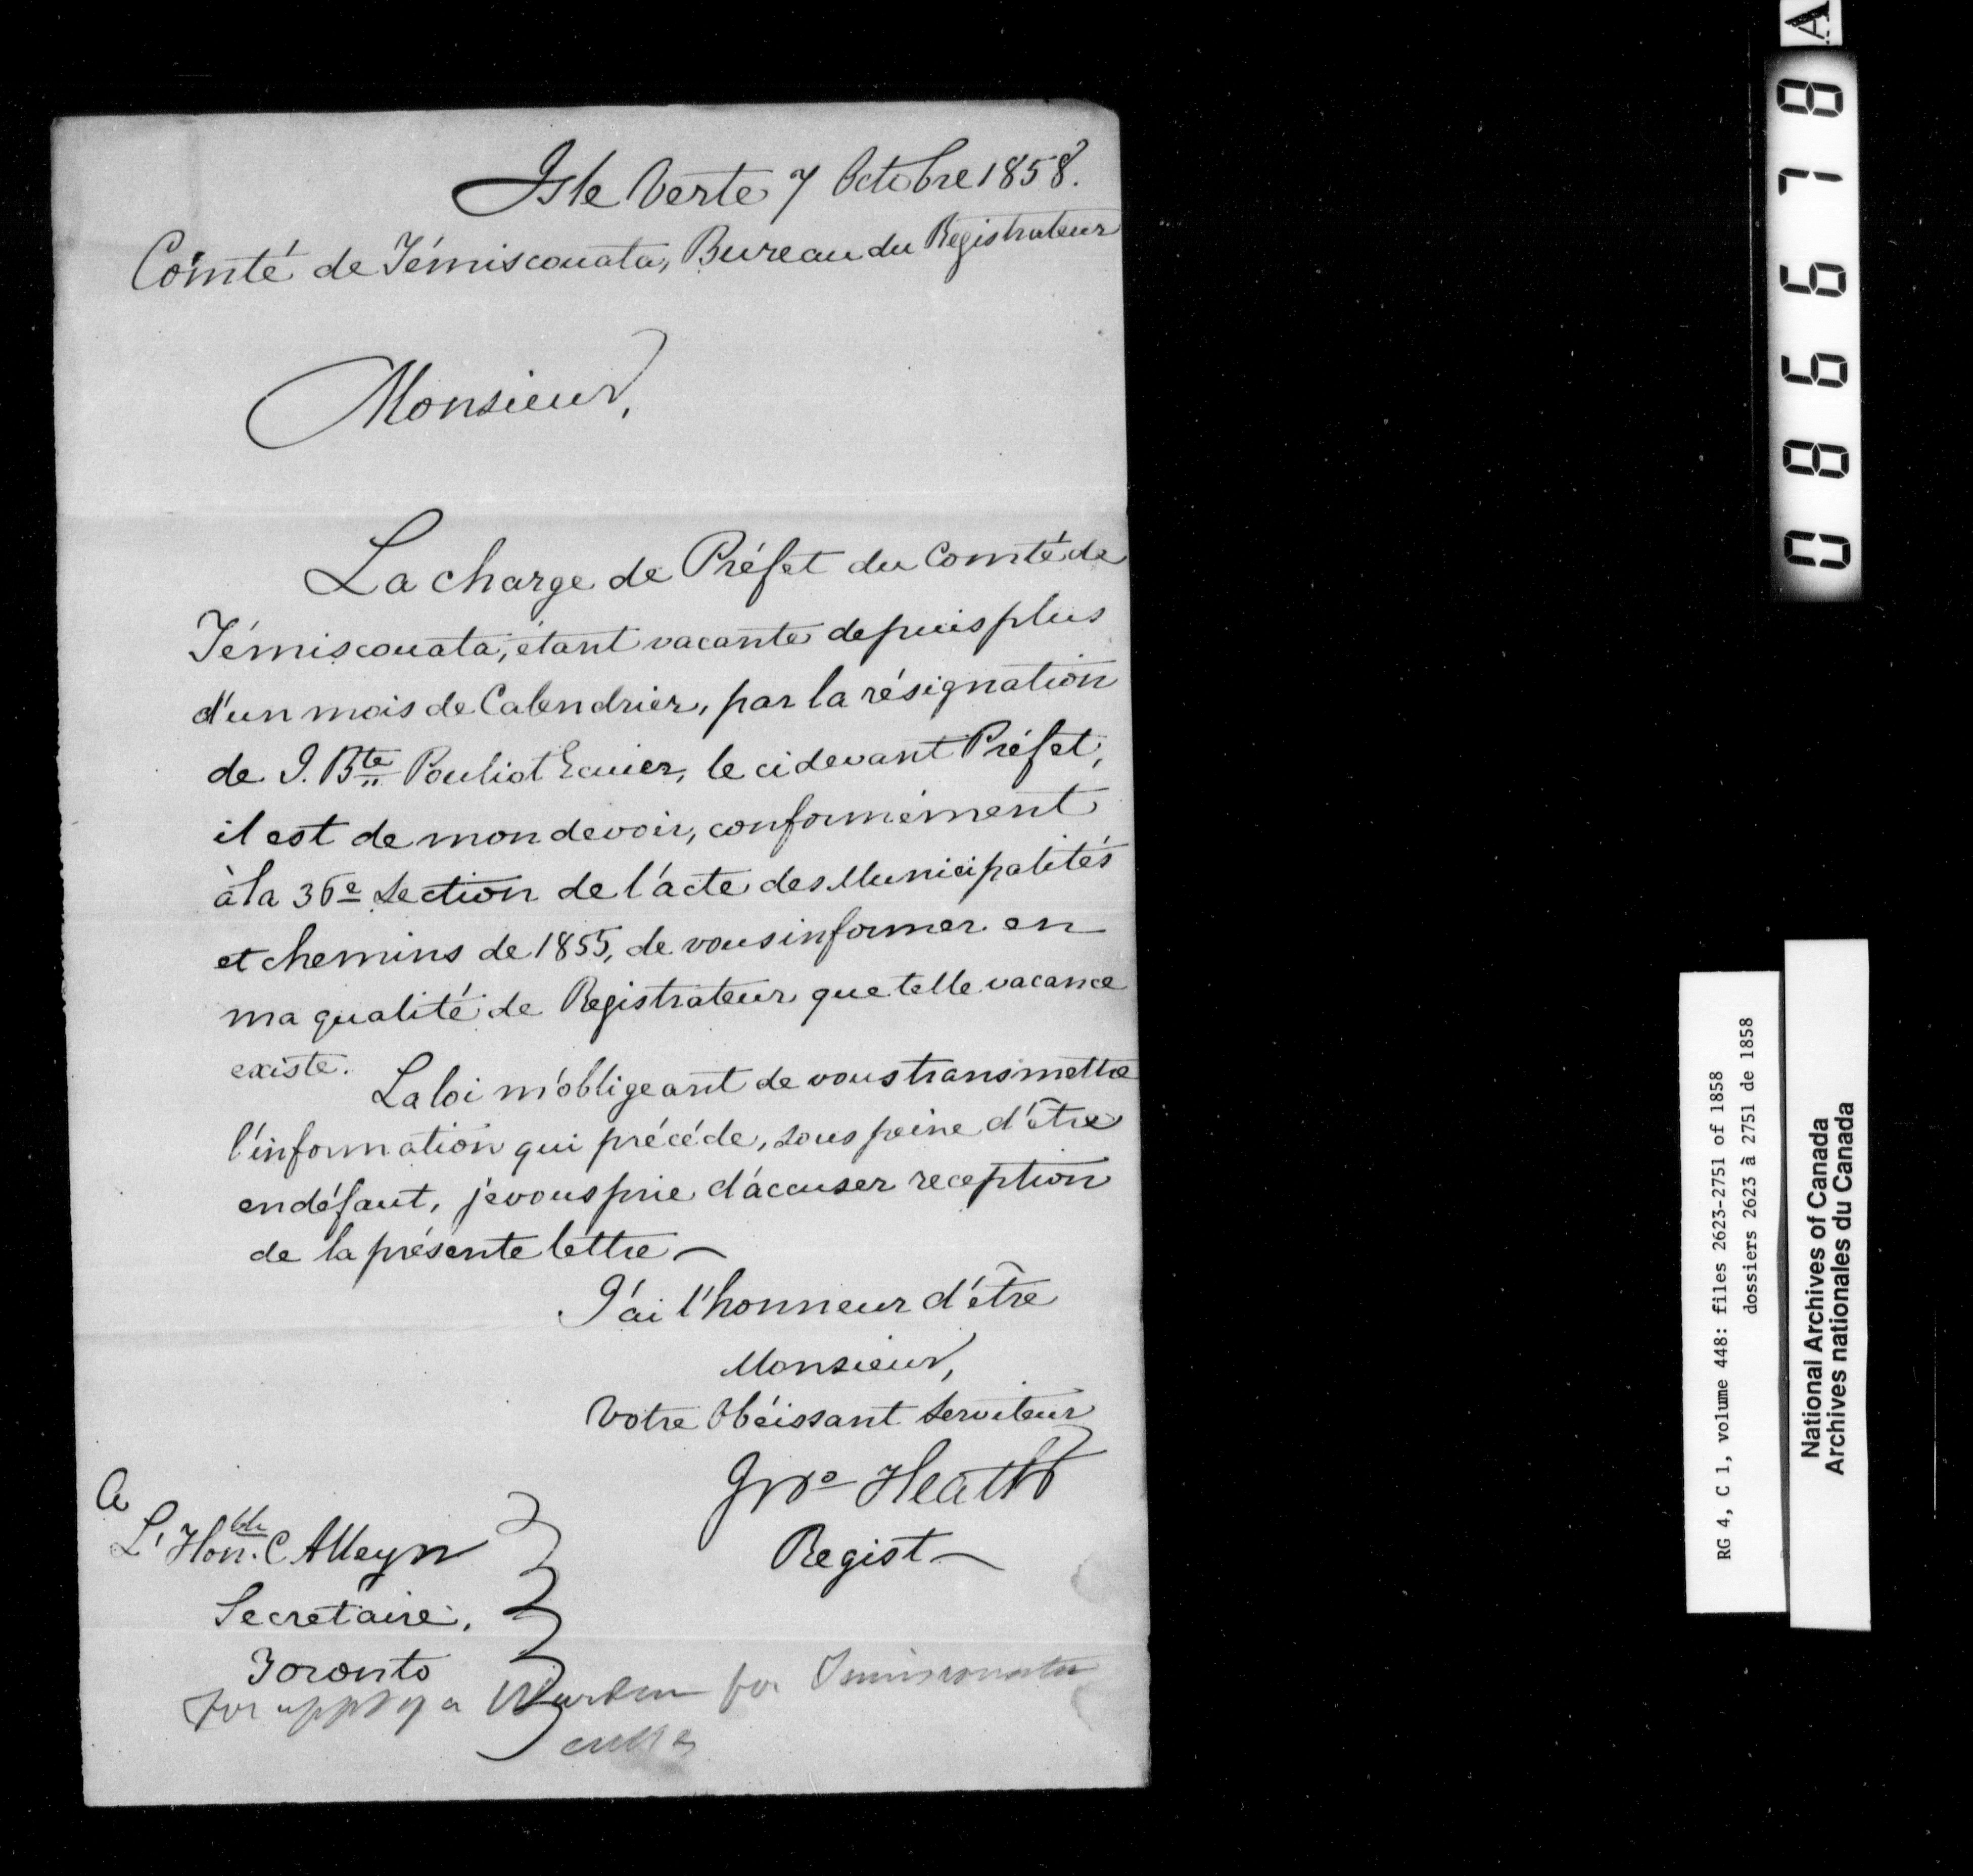 Isle Verte 7 Octobre 1858.
Comté de Témiscouata, Bureau du Registrateur
Monsieur,
La charge de Préfet du Comté de
Témiscouata, étant vacante depuis plus
d'un mois de Calendrier, par la résignation
de J. Bte Pouliot Ecuier, le cidevant Préfet,
il est de mon devoir, conformément
à la 36e Section de l'acte des Municipalités
et chemins de 1855, de vous informer en
ma qualité de Registrateur que telle vacance
existe.
La loi m'obligeant de vous transmettre
l'information qui précéde, sous peine d'être
en défaut, je vous prie d'accuser reception
de la présente lettre —
J'ai l'honneur d'être
Monsieur,
Votre Obéissant Serviteur
Jno Heath
Regist
A
L'Honble C Alleyn
Secretaire,
Toronto
for appt of a Warden for Temiscouata
086678
A
RG 4, C 1, volume 448: files 2623-2751 of 1858
dossiers 2623 à 2751 de 1858
National Archives of Canada
Archives nationales du Canada